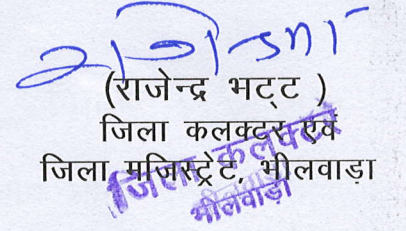 (राजेन्द्र भट्ट )
जिला कलक्टर एवं
जिला मजिस्ट्रेट, भीलवाड़ा
जिला कलक्टर
भीलवाड़ा